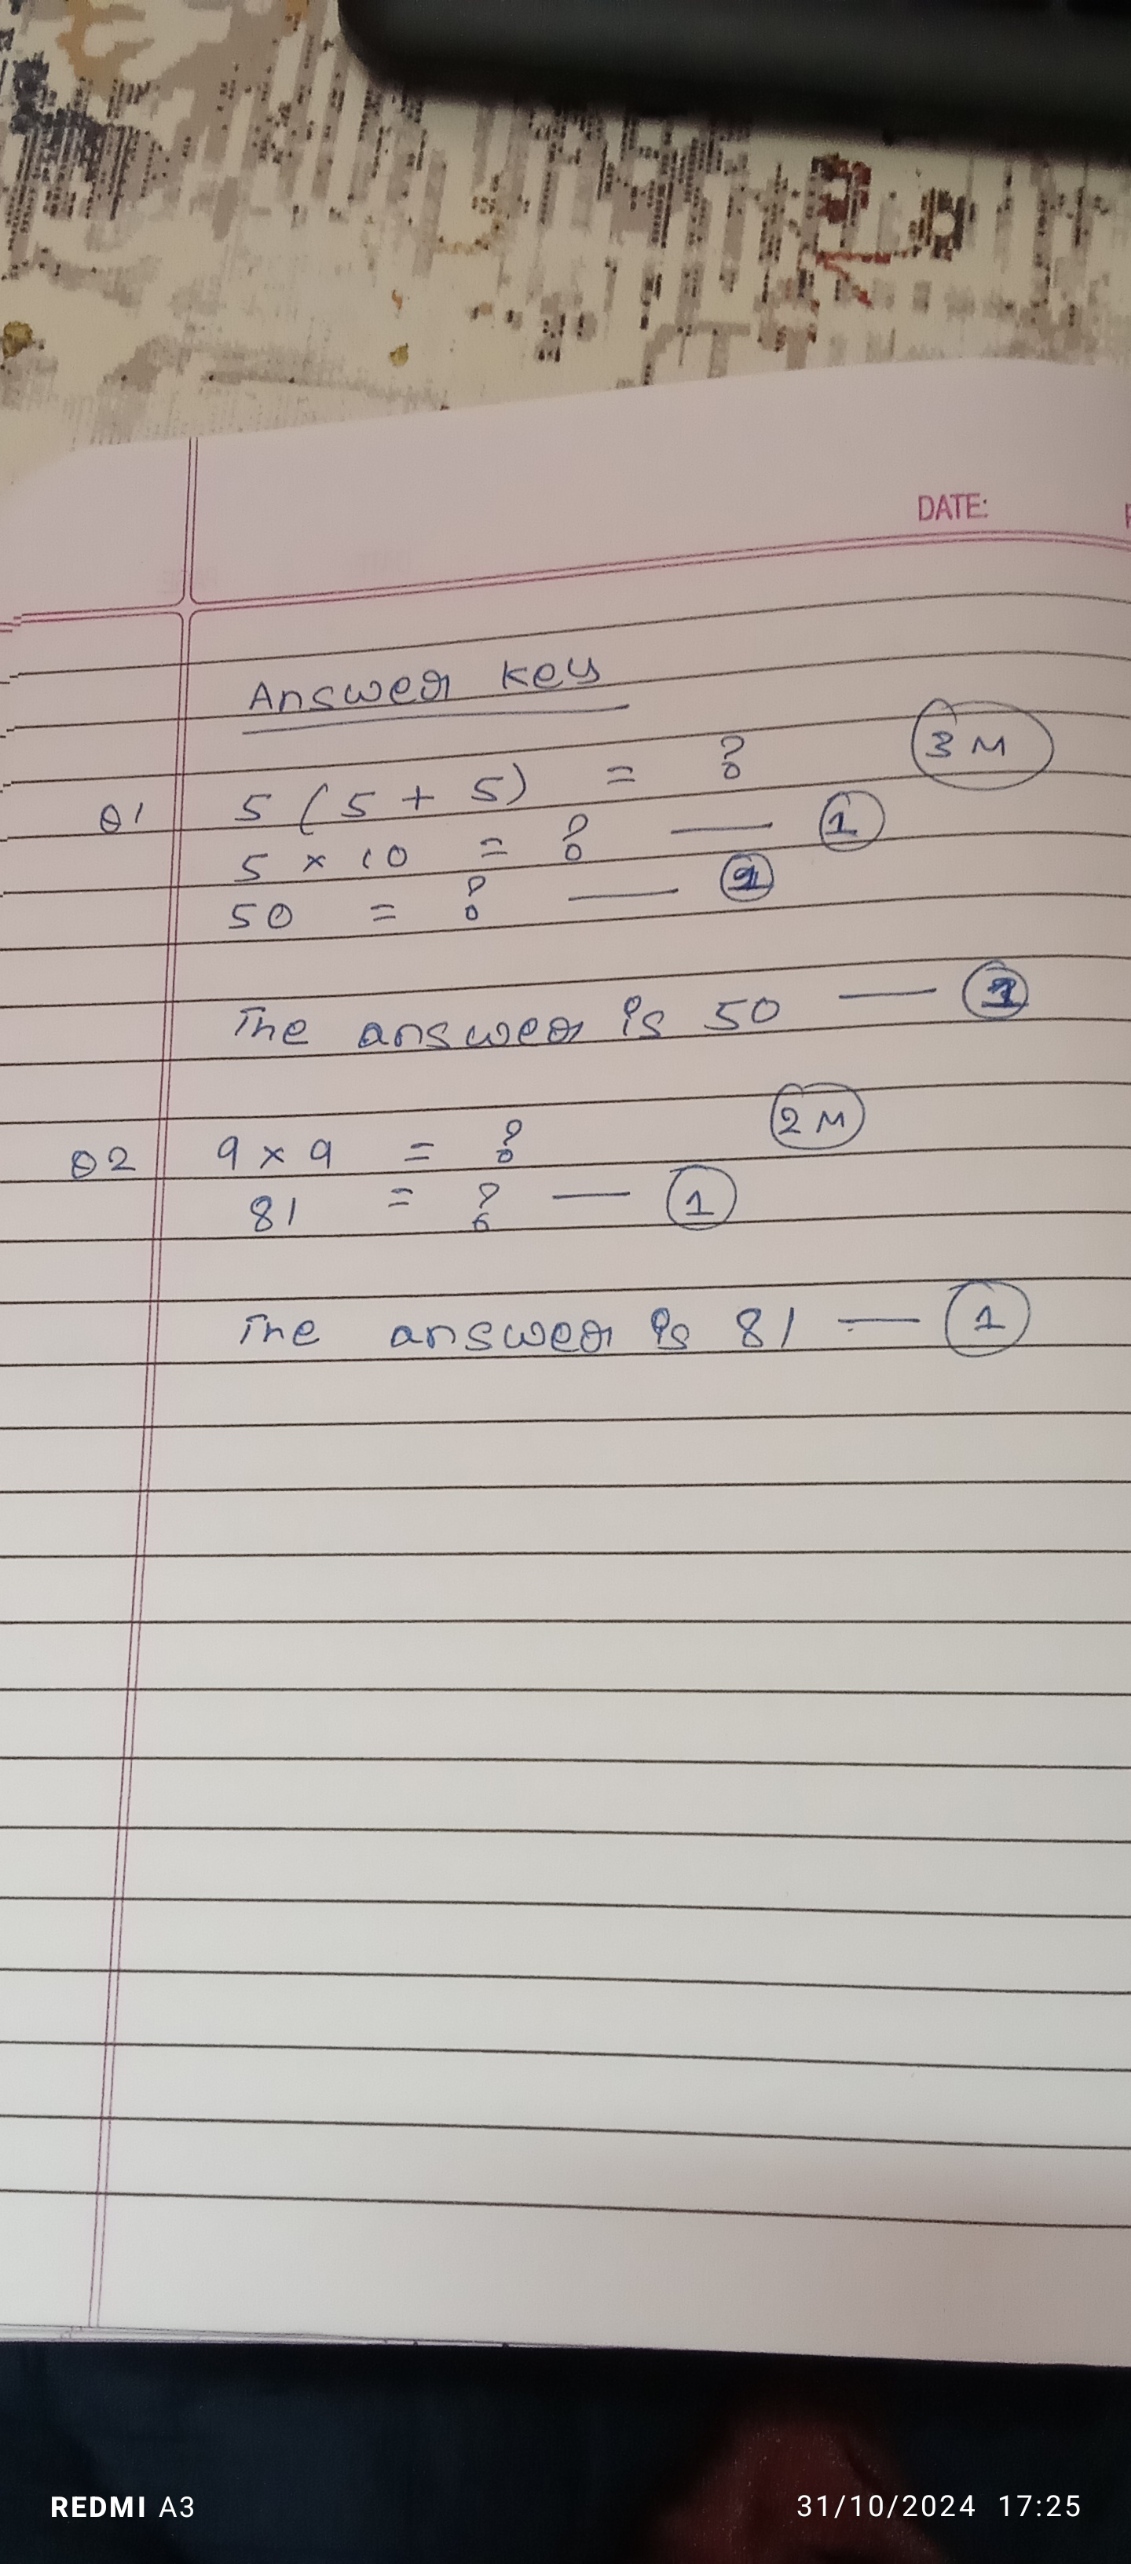 DATE:
Answer key
Q1 5 (5 + 5) = ? 3 M
5 x 10 = ? — 1
50 = ? — 1
The answer is 50 — 1
Q2 9 x 9 = ? 2 M
81 = ? — 1
The answer is 81 — 1
REDMI A3
31/10/2024 17:25